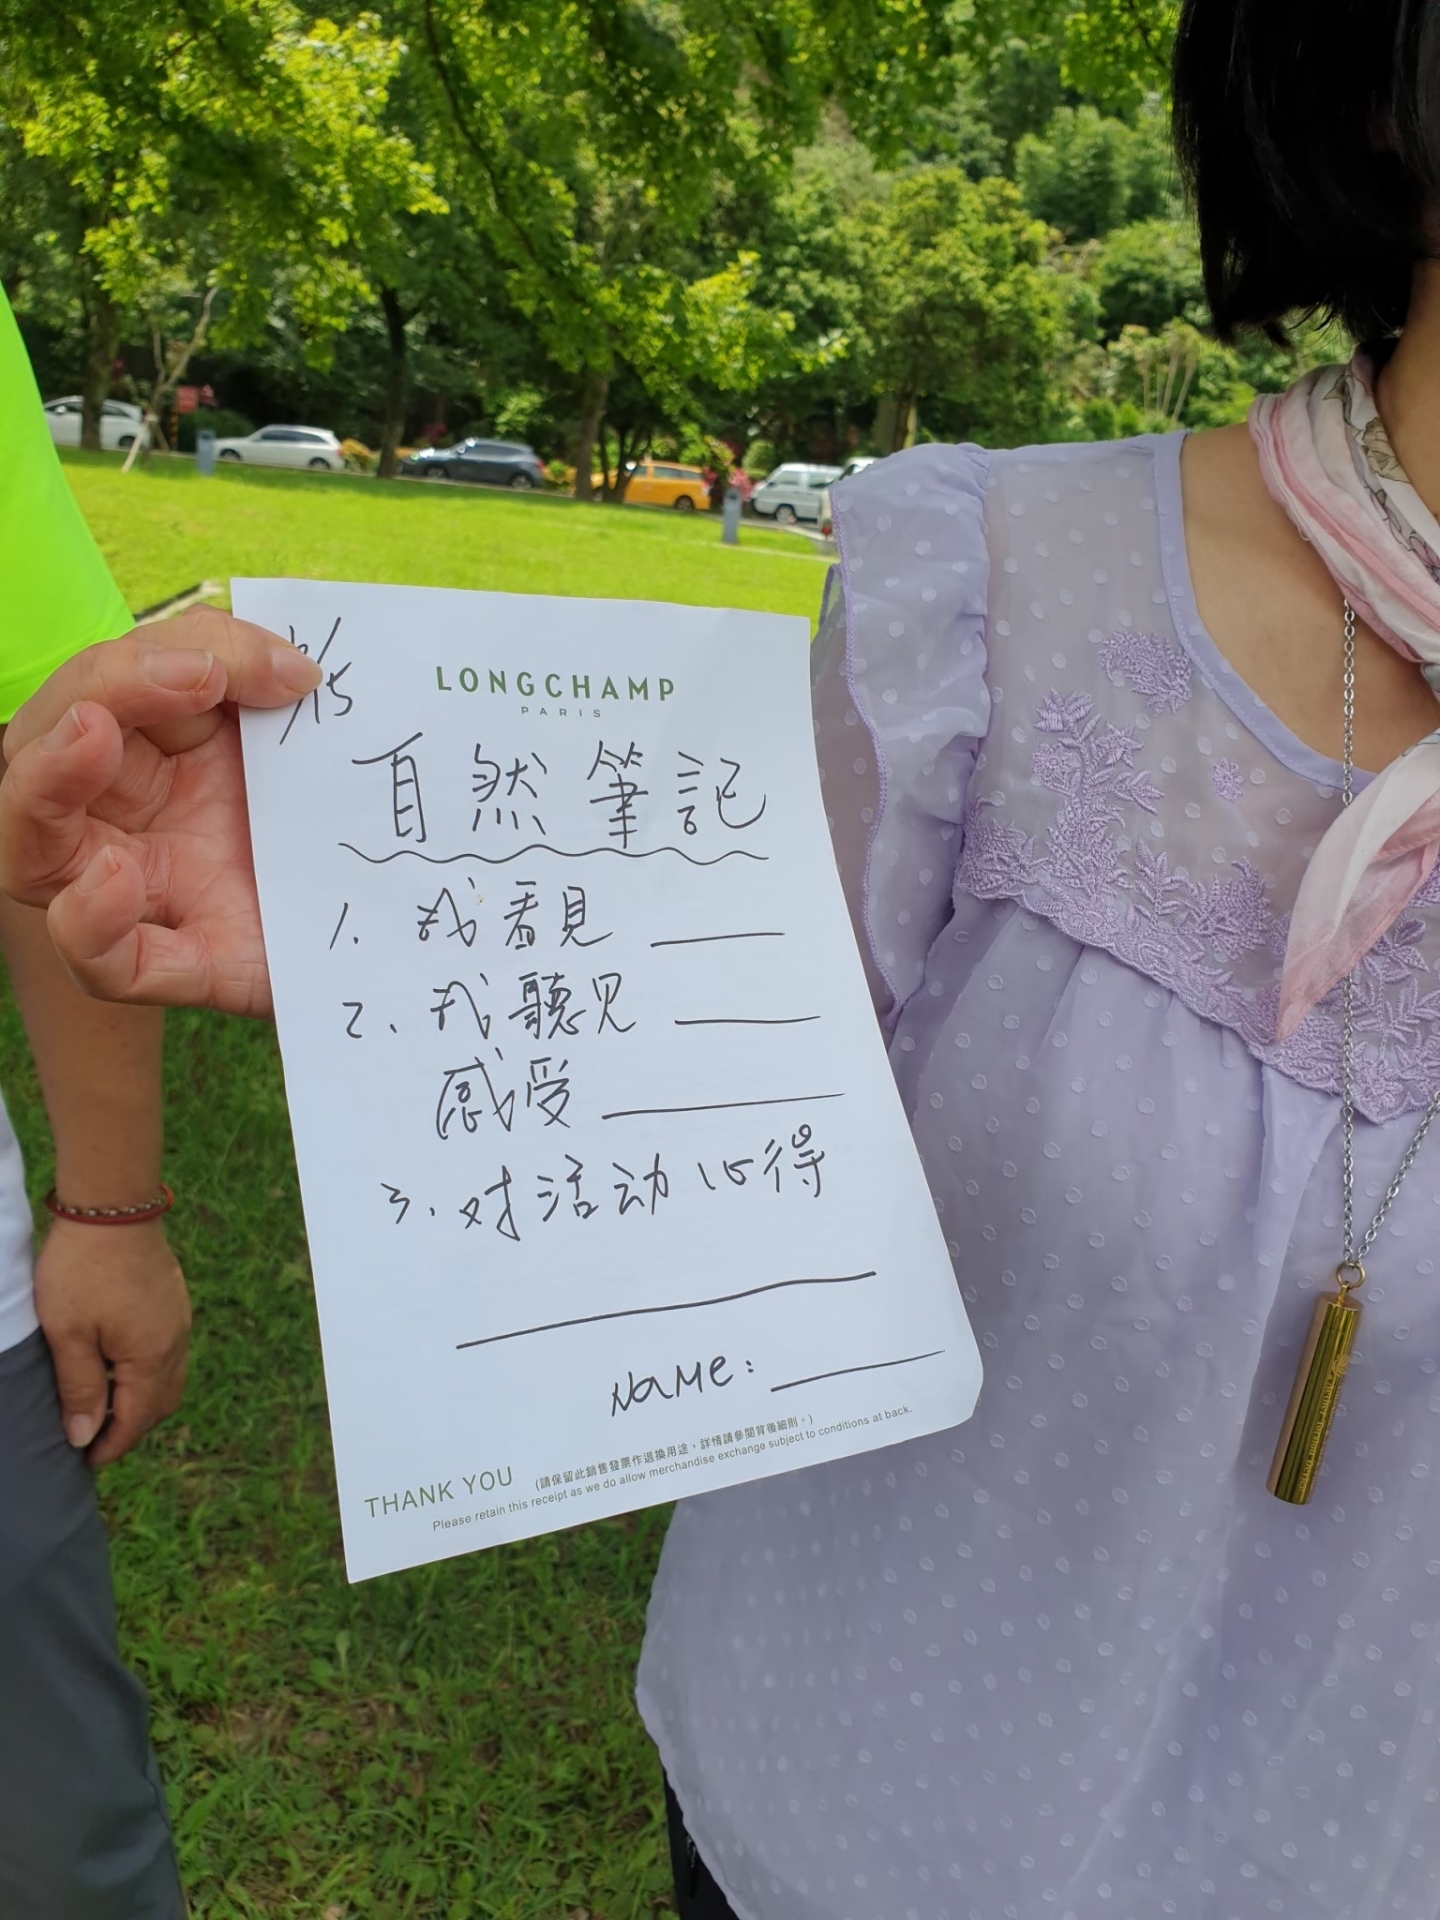 LONGCHAMP
PARIS
自然筆記
1. 我看見
2. 我聽見
感受
3. 对活动心得
NaMe:
THANK YOU
(請保留此銷售發票作退換用途，詳情請參閱背後細則。)
Please retain this receipt as we do allow merchandise exchange subject to conditions at back.